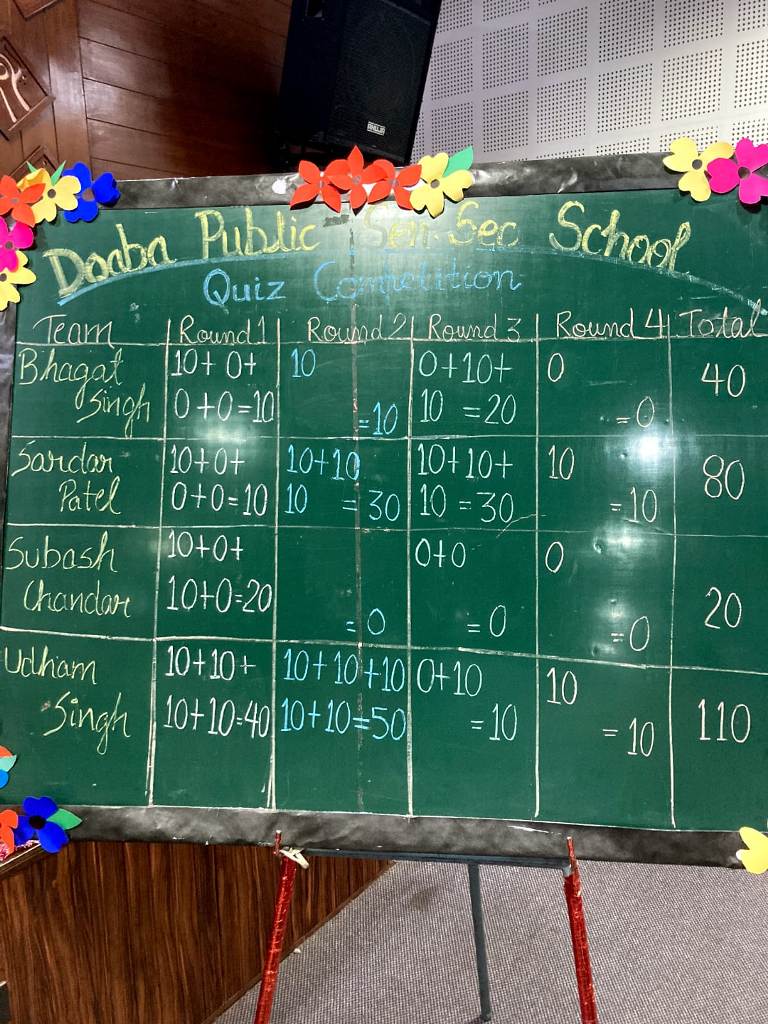 AHUJA
Doaba Public Sen. Sec School
Quiz Competition
Team Round 1 Round 2 Round 3 Round 4 Total
Bhagat 10+0+ 10 0+10+ 0 40
Singh 0+0=10 =10 10 =20 =0
Sardar 10+0+ 10+10 10+10+ 10 80
Patel 0+0=10 10 =30 10 =30 =10
Subash 10+0+ 0+0 0
Chandar 10+0=20 =0 =0 =0 20
Udham 10+10+ 10+10+10 0+10 10
Singh 10+10=40 10+10=50 =10 =10 110